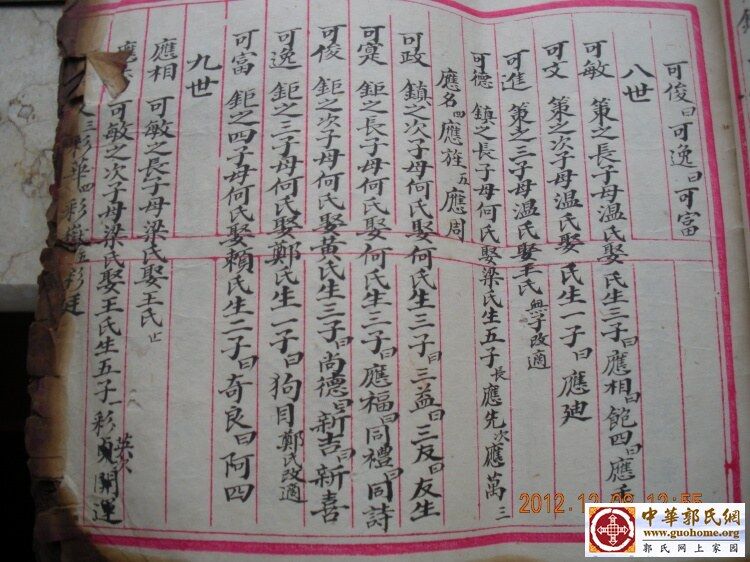 可俊曰可逸曰可富
八世
可敏 策之長子母溫氏娶 氏生三子曰應相曰飽四曰應
可文 策之次子母溫氏娶 氏生一子曰應廸
可進 策之三子母溫氏娶王氏無子改適
可德 鎮之長子母何氏娶梁氏生五子長應先次應萬三
應名四應旌五應周
可政 鎮之次子母何氏娶何氏生三子曰三益曰三友曰友生
可寔 鉅之長子母何氏娶何氏生三子曰應福曰同禮曰同詩
可俊 鉅之次子母何氏娶黃氏生三子曰尚德曰新吉曰新喜
可逸 鉅之三子母何氏娶鄭氏生一子曰狗目鄭氏改適
可富 鉅之四子母何氏娶賴氏生二子曰奇良曰阿四
九世
應相 可敏之長子母梁氏娶王氏止
應 可敏之次子母梁氏娶王氏生五子一彩 英次 開運
三彩華四彩 五彩廷
2012.12.09 12:55
中華郭氏網
www.guohome.org
郭氏网上家园